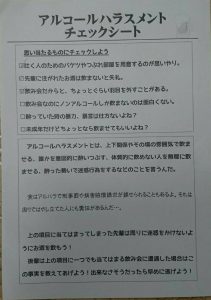 アルコールハラスメント
チェックシート
思い当たるものにチェックしよう
☑吐く人のためのバケツやつぶれ部屋を用意するのが思いやり。
☑先輩に注がれたお酒は飲まないと失礼。
☑飲み会だからと、ちょっとぐらい羽目を外すことがある。
☑飲み会なのにノンアルコールしか飲まないのは面白くない。
☑酔っていた時の暴力、暴言は仕方ないよね？
☑未成年だけどちょっとなら飲ませてもいいよね？
アルコールハラスメントとは、上下関係やその場の雰囲気で飲ま
せる、誰かを意図的に酔いつぶす、体質的に飲めない人を無理に飲
ませる、酔った勢いで迷惑行為をするなどのことを言うんだ。
実はアルハラで刑事罰や損害賠償請求が課せられることもあるよ。それは
周りではやし立てた人にも責任があるんだ…。
上の項目に当てはまってしまった先輩は周りに迷惑をかけないよ
うにお酒を飲もう！
後輩は上の項目に一つでも当てはまる飲み会に遭遇した場合はこ
の事実を教えてあげよう！出来なさそうだったら早めに逃げよう！